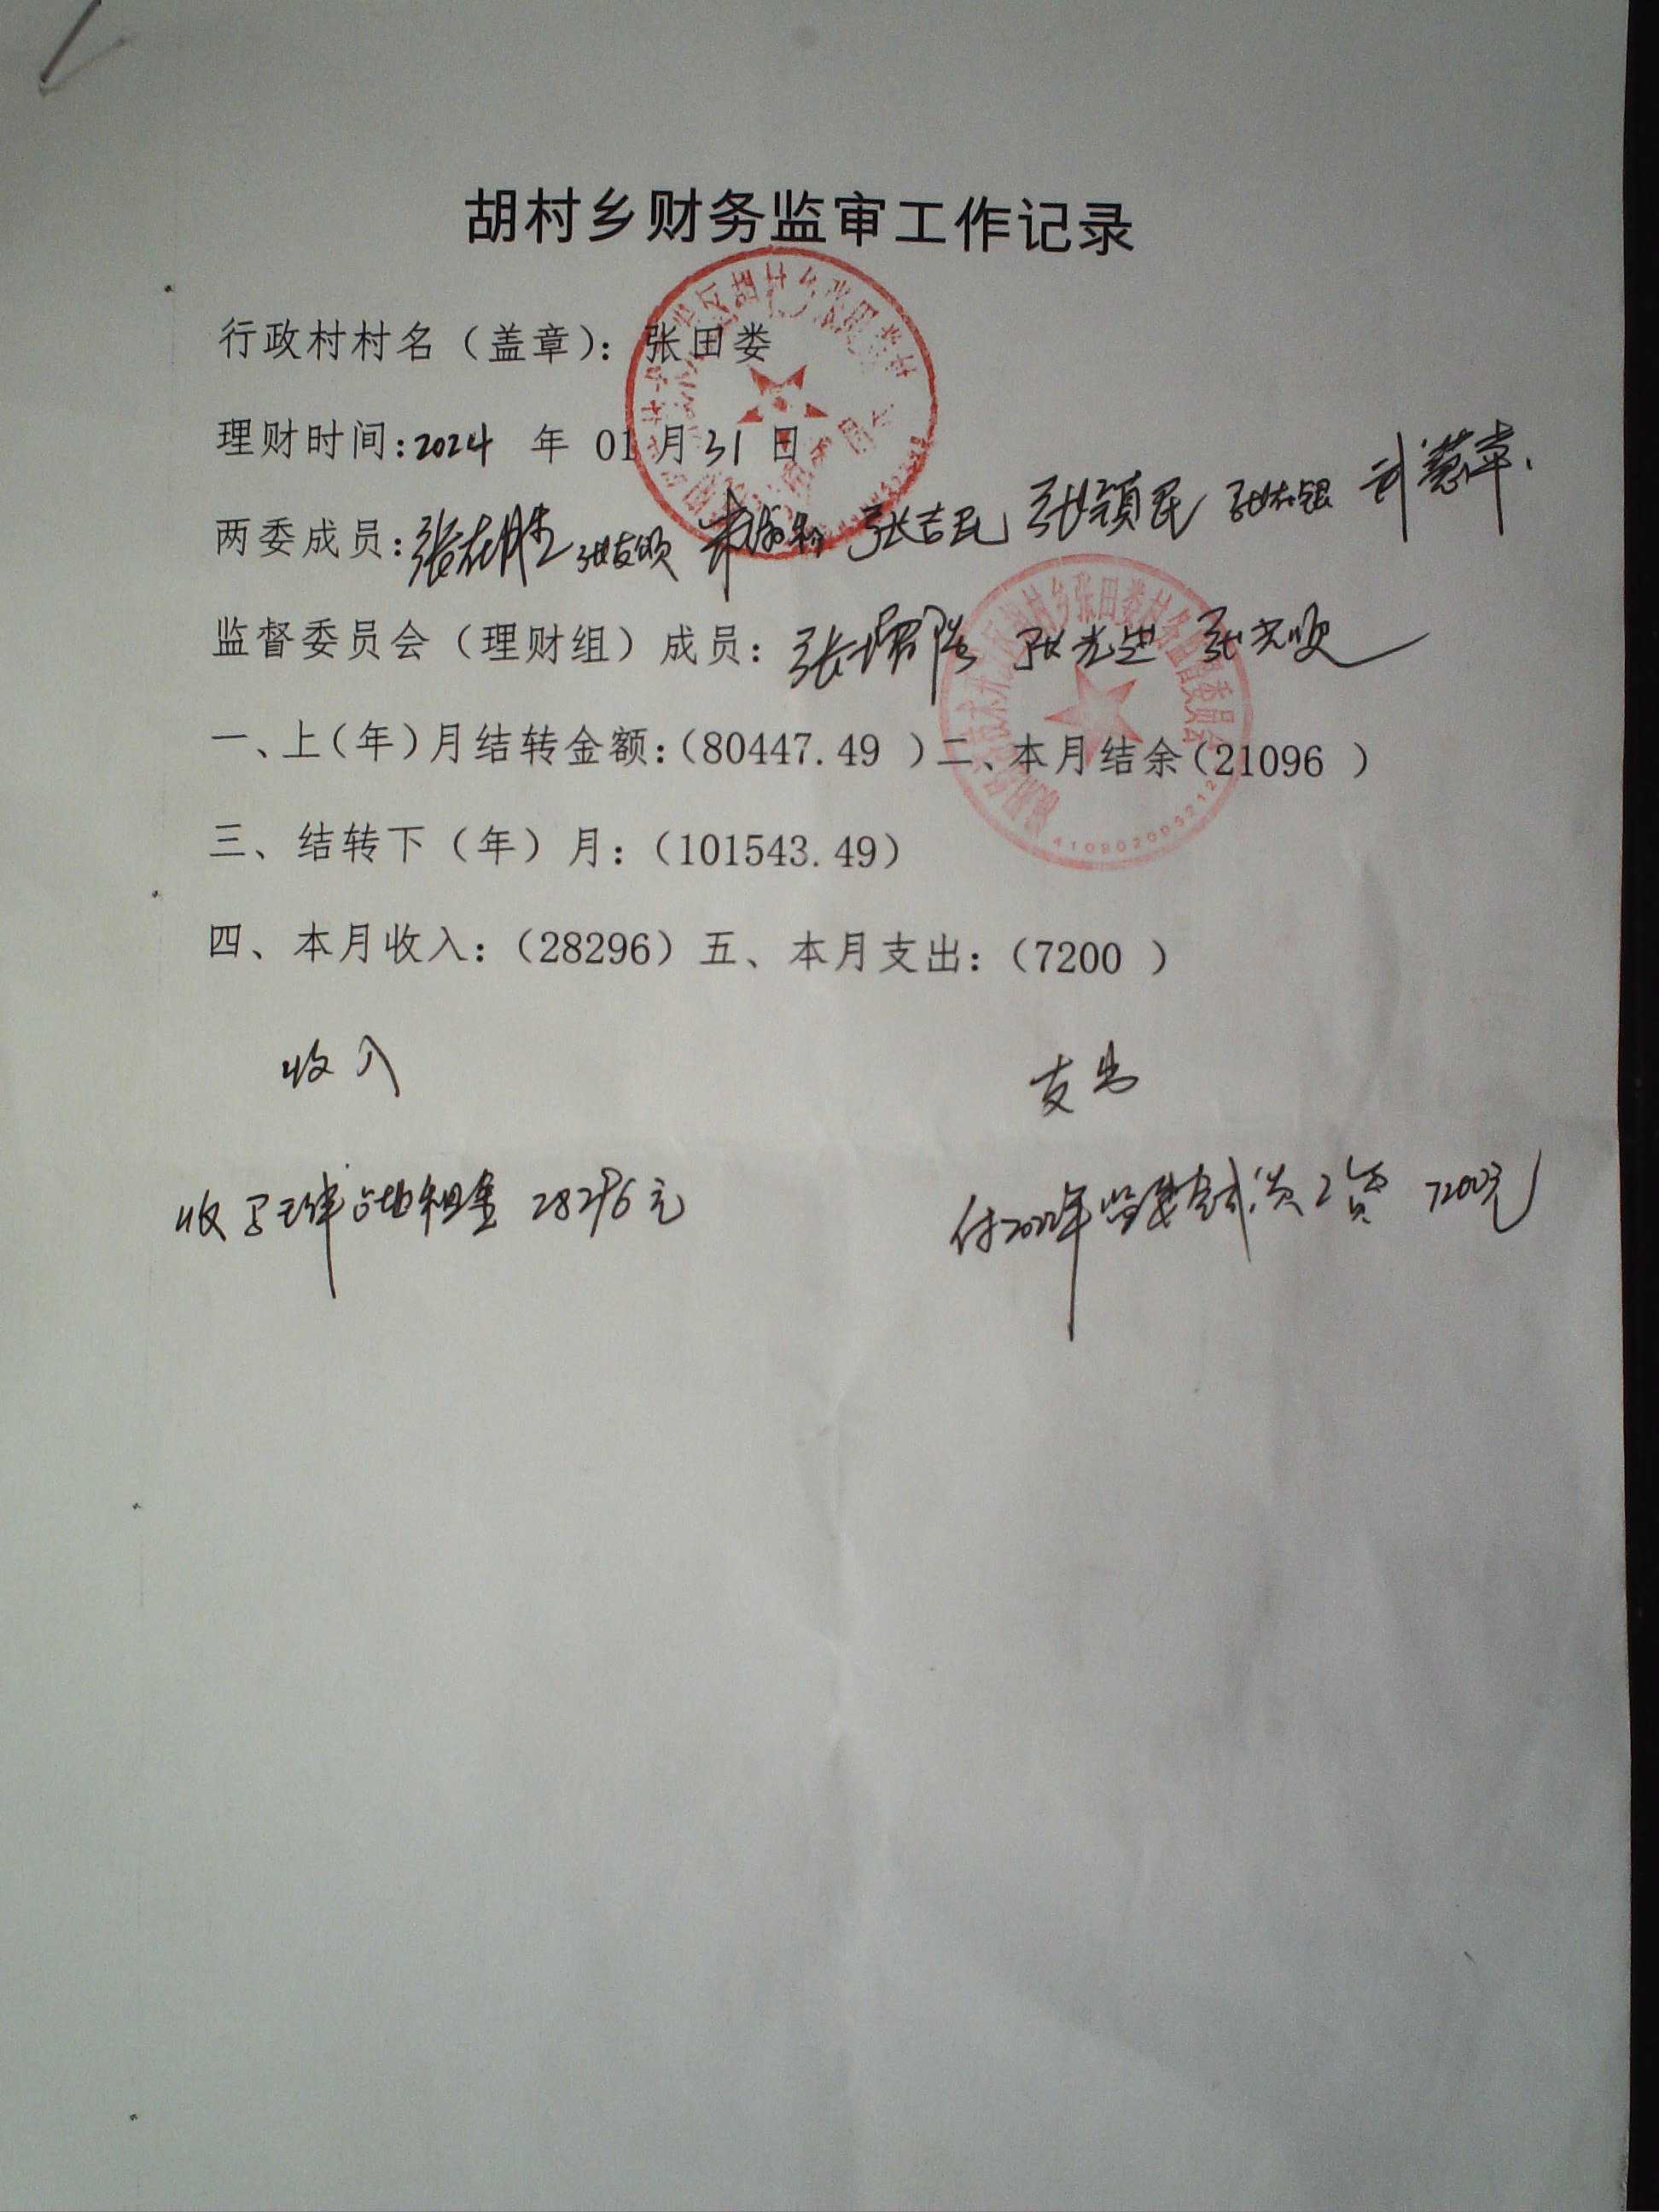 胡村乡财务监审工作记录
行政村村名（盖章）：张田娄
理财时间：2024 年 01 月 31 日
两委成员：张在胜 张友颂 张吉民 张镇民 张林银
监督委员会（理财组）成员：张 张光 张光顺
一、上（年）月结转金额：（80447.49 ）二、本月结余（21096 ）
三、结转下（年）月：（101543.49）
四、本月收入：（28296）五、本月支出：（7200 ）
收入 支出
收 占地租金 28296元 付2022年监委会成员工资 7200元
村乡张田娄村务监督委员会
4109020093212